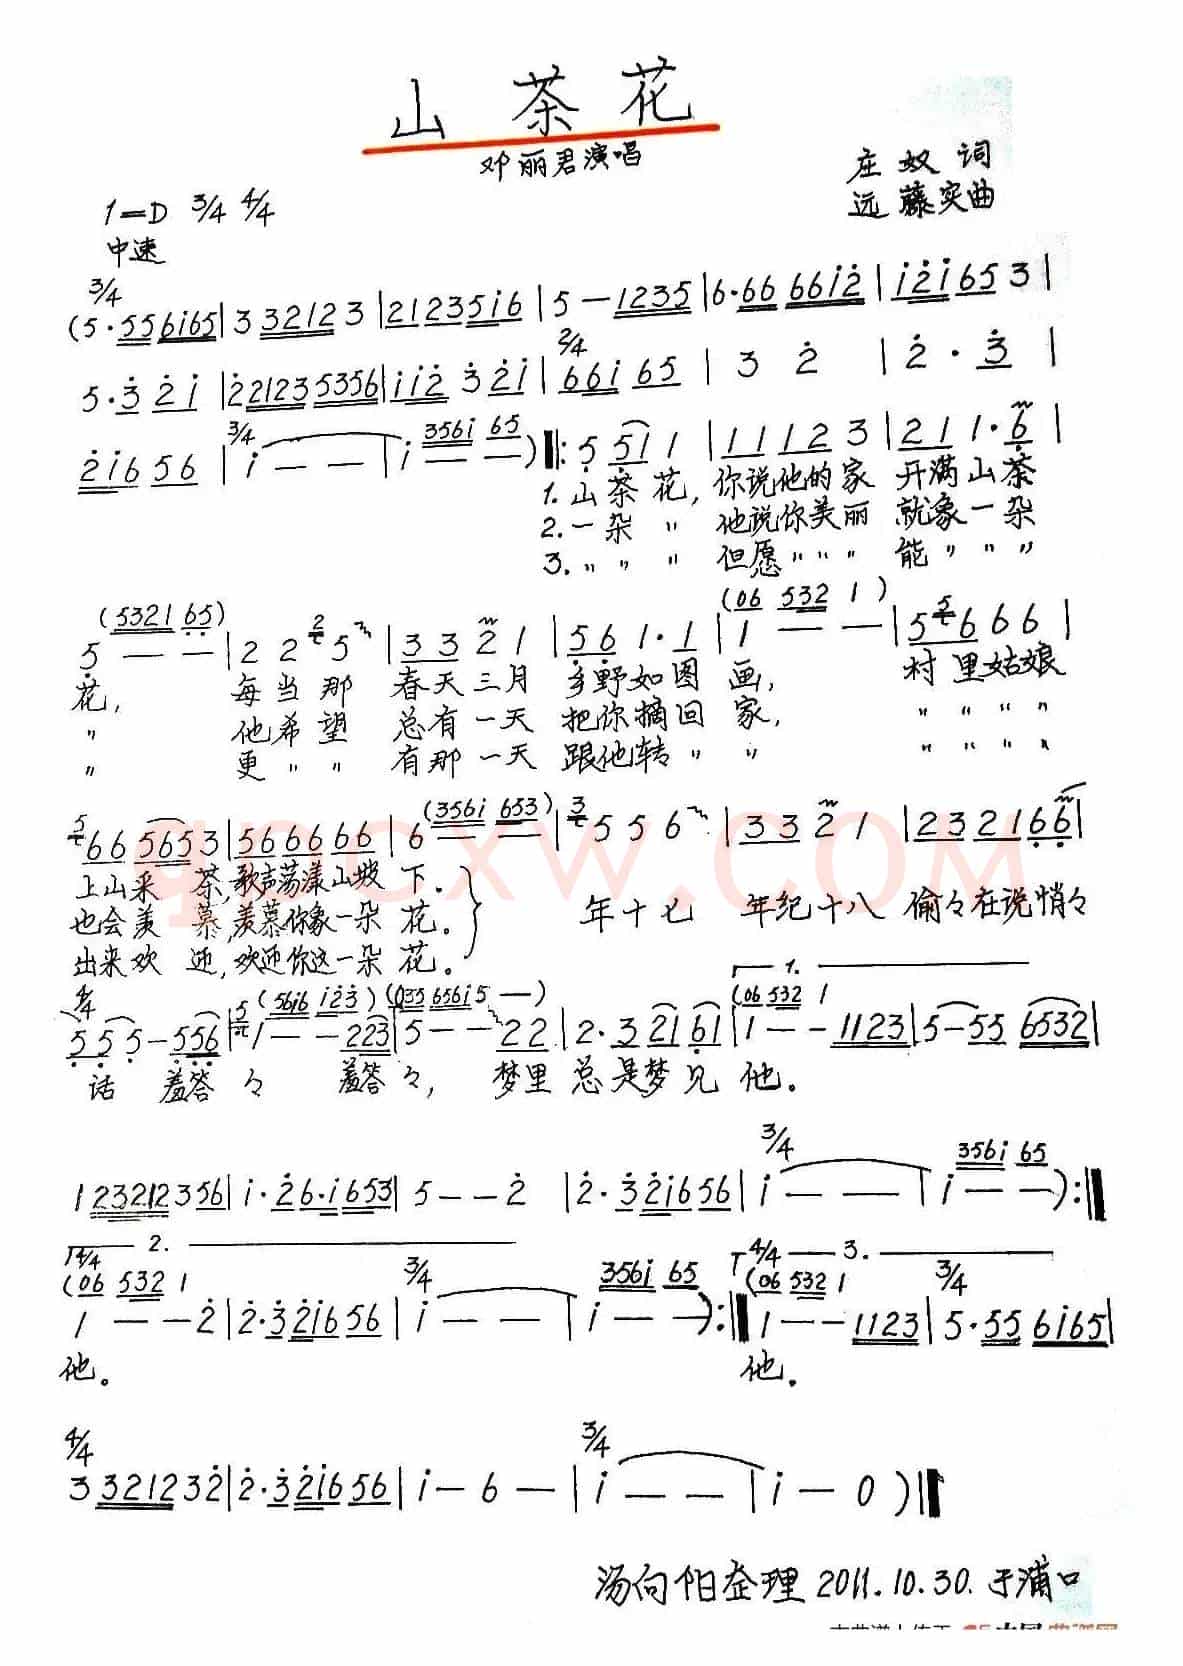 山茶花
邓丽君演唱
庄奴词
远藤实曲
1=D 3/4 4/4
中速
3/4
(5·55 6i65 | 3 32123 | 21235i6 | 5 — 1235 | 6·66 66i2 | i2i65 3 |
2/4
5·3 2i | 22123 5356 | ii2 3 2i | 66i 65 | 3 2 | 2 · 3 |
3/4 356i 65
2i6 56 | i — — | i — — ) ‖: 5 51 1 | 1 1 1 2 3 | 211·6 |
1.山茶花,你说他的家 开满山茶
2.一朵〃 他说你美丽 就象一朵
3.〃〃〃 但愿〃〃〃 能〃〃〃
(5321 65) (06 532 1)
5 — — | 2 2 5 | 3 3 2 1 | 5 6 1·1 | 1 — — | 5 6 6 6 |
花, 每当那 春天三月 乡野如图画, 村里姑娘
〃 他希望 总有一天 把你摘回家, 〃〃〃〃
〃 更〃〃 有那一天 跟他转〃〃 〃〃〃〃
(356i 653)
66 5653 | 56 66 66 | 6 — — | 5 5 6 | 3 3 2 1 | 232166 |
上山采茶,歌声荡漾山坡下.
也会羡慕,羡慕你象一朵花。
出来欢迎,欢迎你这一朵花。
年十七 年纪十八 偷々在说悄々
1.
4/4 (56i6 i23) (035 656i5 —) (06 532 1
5 5 5 — 556 | 1 — — 223 | 5 — — 22 | 2·3 21 61 | 1 — — 1123 | 5 — 55 6532 |
话 羞答々 羞答々, 梦里总是梦见他。
3/4 356i 65
123212356 | i·26·i653 | 5 — — 2 | 2·32i656 | i — — | i — — ) :‖
4/4 2.
(06 532 1 3/4 356i 65
1 — — 2 | 2·32i656 | i — — | i — — ) :‖
他。
4/4 3.
(06 532 1 3/4
1 — — 1123 | 5·55 6i65 |
他.
4/4 3/4
3 3212 32 | 2·32i656 | i — 6 — | i — — | i — 0 ) ‖
汤向阳整理 2011.10.30.于浦口
qpcxw.com